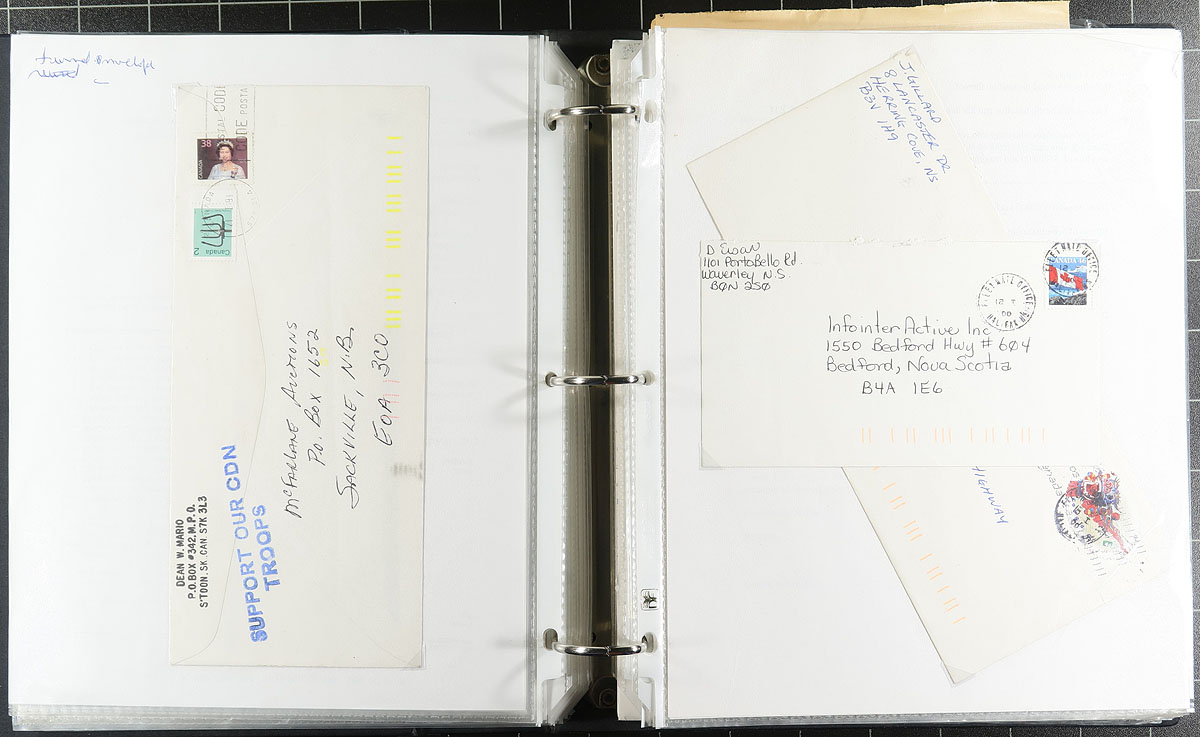 turned envelope
POSTAL CODE
CODE POSTAL
38
CANADA
Canada
2
McFARLANE AUCTIONS
P.O. BOX 1652
SACKVILLE, N.B.
E0A 3C0
DEAN W. MARIO
P.O. BOX #342, M.P.O.
S'TOON, SK. CAN. S7K 3L3
SUPPORT OUR CDN
TROOPS
J. GILLARD
8 LANCASTER DR
HERRING COVE, NS
B3V 1H9
D Ewan
1101 PortoBello Rd.
Waverley N.S.
BØN 2SØ
FLEET MAIL OFFICE
12 I
00
HALIFAX NS
CANADA 46
InfointerActive Inc
1550 Bedford Hwy # 604
Bedford, Nova Scotia
B4A 1E6
HIGHWAY